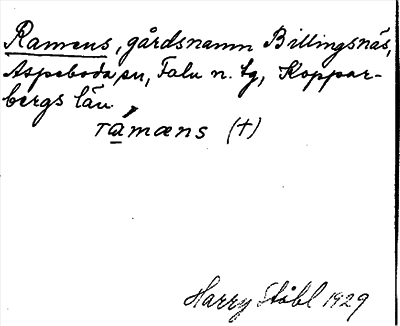 Ramens, gårdsnamn Billingsnäs,
Aspeboda sn, Falu n. tg, Koppar-
bergs län
rámæns (+)
Harry Ståhl 1929